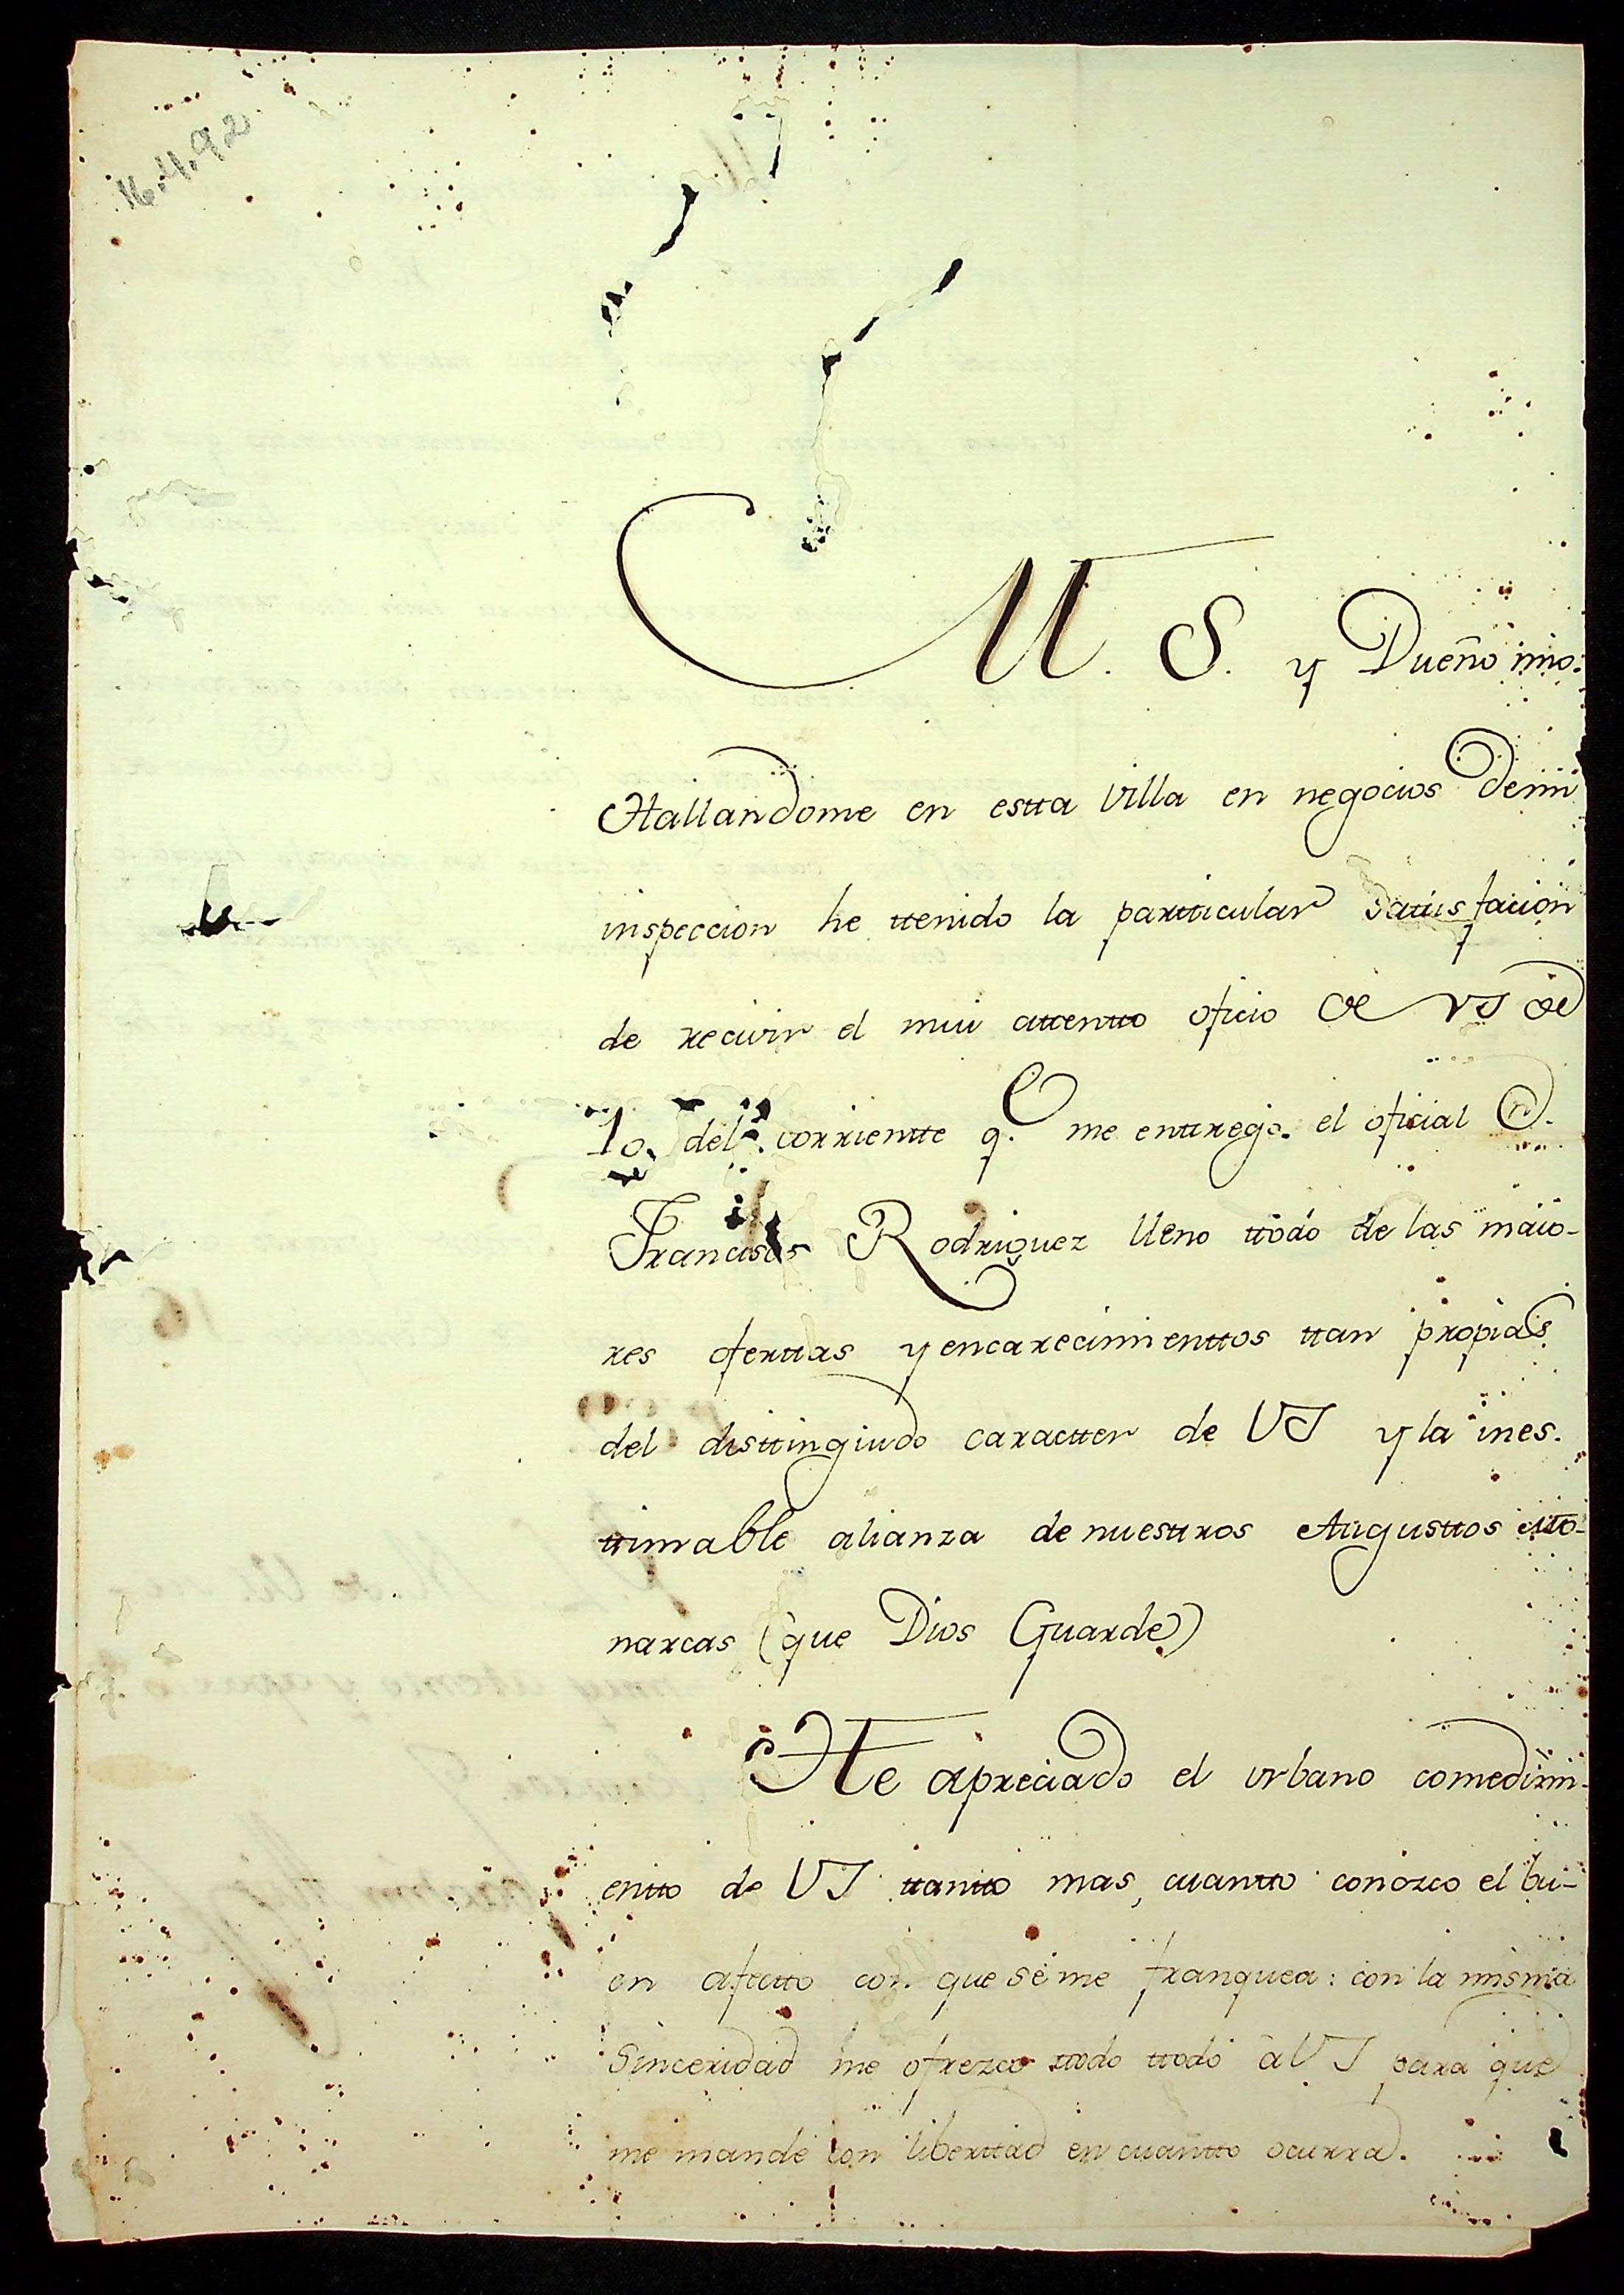 16.4.92
M. S. y Dueño mio.
Hallandome en estta Villa en negocios demi
inspeccion he ttenido la partticular Sattisfacion
de recivir el mui attentto oficio de VS de
10. del corrientte q.e me enttregó. el oficial Dn.
Francisco Rodriguez lleno ttodo de las maio-
res oferttas y encarecimienttos ttan propias
del disttinguido caractter de VS y la ines-
ttimable alianza de nuesttros Augusttos Mo-
narcas (que Dios Guarde)
He apreciado el urbano comedimi-
entto de VS ttantto mas, cuantto conozco el bu-
en afectto con que se me franquea: con la misma
Sinceridad me ofrezco ttodo ttodo â VS para que
me mande con liberttad en cuantto ocurra.